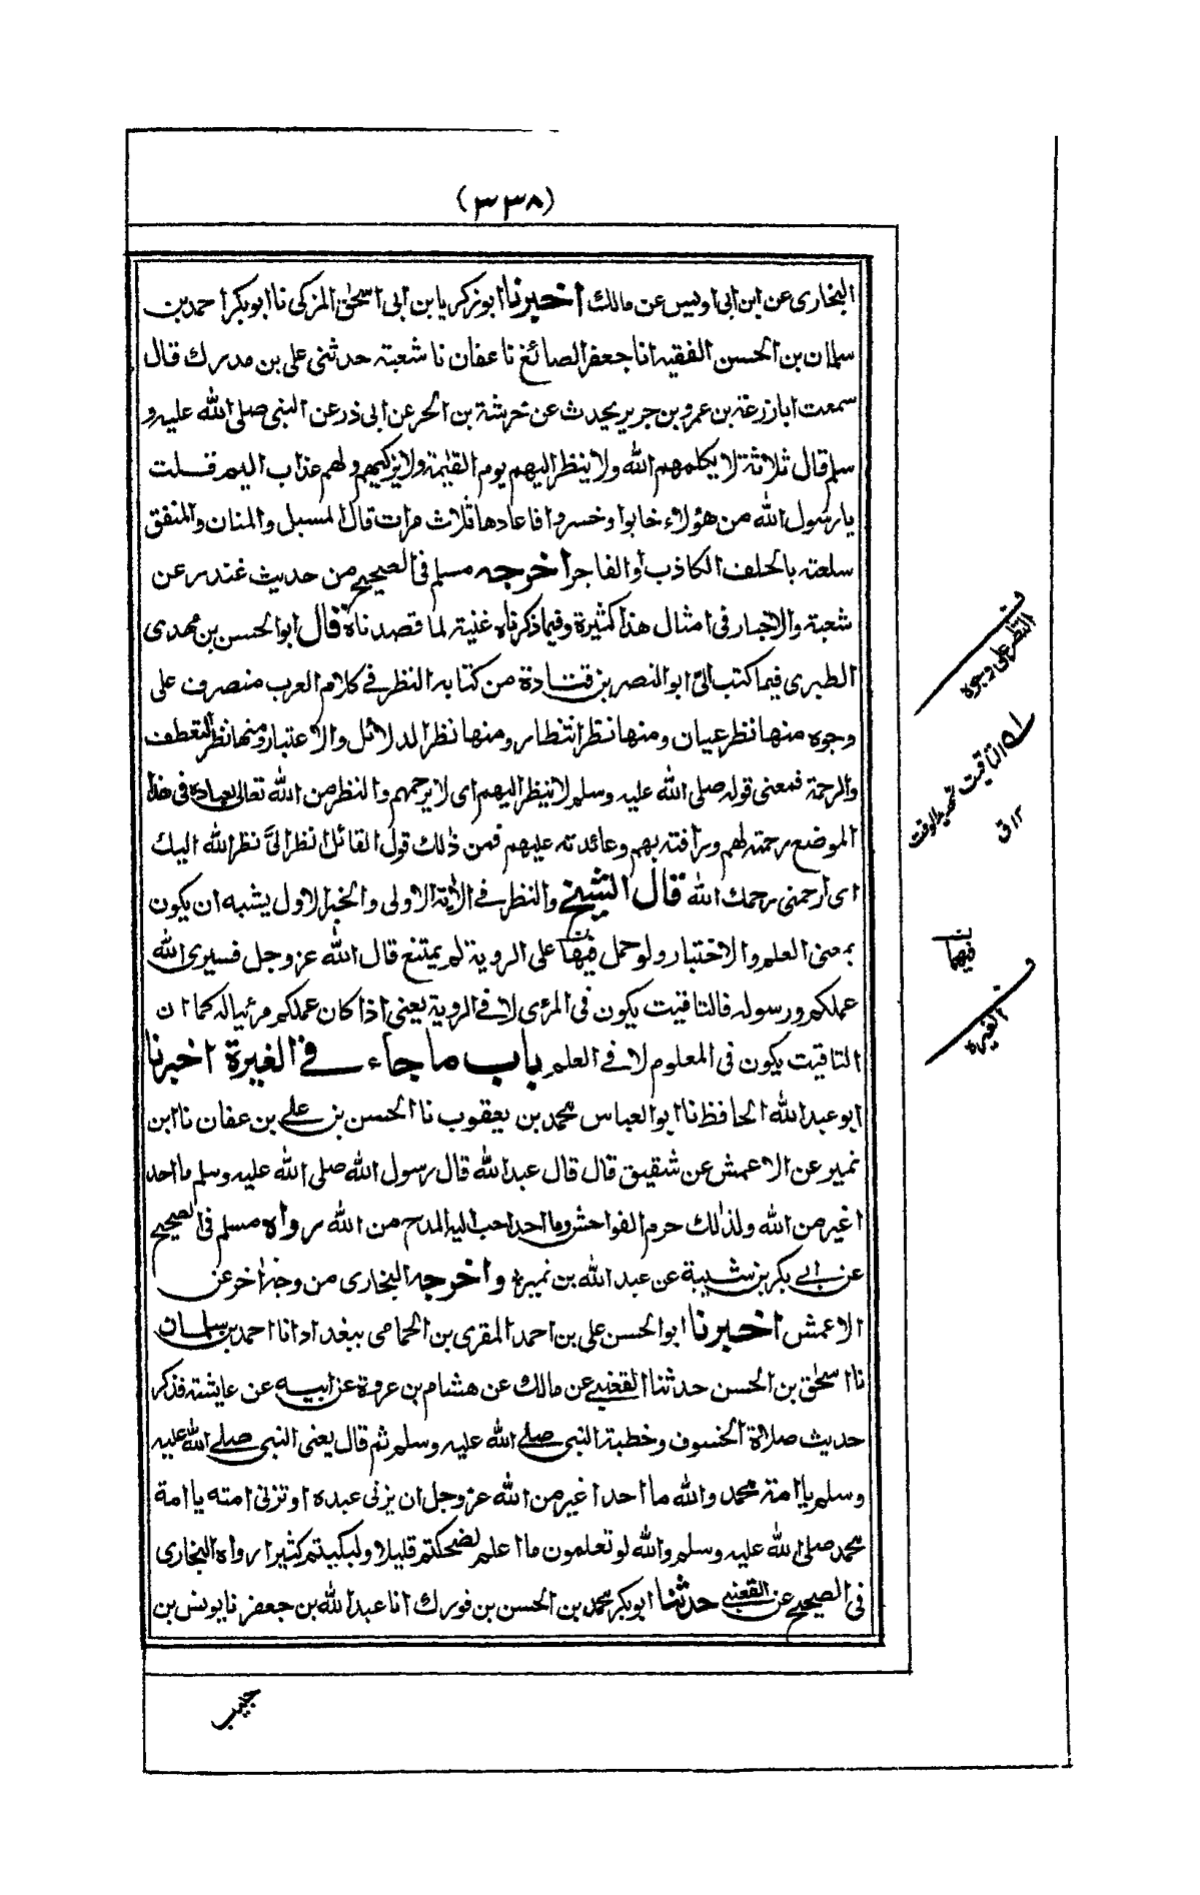 (٣٣٨)
البخارى عن ابن ابى اويس عن مالك اخبرنا ابو زكريا بن ابى اسحٰق المزكى نا ابو بكر احمد بن
سلمان بن الحسن الفقيه انا جعفر الصائغ نا عفان نا شعبة حدثنى على بن مدرك قال
سمعت ابا زرعة بن عمرو بن جرير يحدث عن خرشة بن الحر عن ابى ذر عن النبى صلى الله عليه و
سلم قال ثلاثة لا يكلمهم الله ولا ينظر اليهم يوم القيٰمة ولا يزكيهم ولهم عذاب اليم قلت
يا رسول الله من هؤلاء خابوا وخسروا فاعادها ثلاث مرات قال المسبل والمنان والمنفق
سلعته بالحلف الكاذب او الفاجر اخرجه مسلم فى الصحيح من حديث غندر عن
شعبة والاخبار فى امثال هذا كثيرة وفيما ذكرناه غنية لما قصدناه قال ابو الحسن بن مهدى
الطبرى فيما كتب الىّ ابو النصر بن قتادة من كتابه النظر فى كلام العرب منصرف على
وجوه منها نظر عيان ومنها نظر انتظار ومنها نظر الدلائل والاعتبار ومنها نظر التعطف
والرحمة فمعنى قوله صلى الله عليه وسلم لا ينظر اليهم اى لا يرحمهم والنظر من الله تعالى لعباده فى هذا
الموضع رحمته لهم ورافته بهم وعائدته عليهم فمن ذلك قول القائل انظر الىّ نظر الله اليك
اى ارحمنى رحمك الله قال الشيخ والنظر فى الآية الاولى والخبر الاول يشبه ان يكون
بمعنى العلم والاختبار ولو حمل فيها على الروية لم يمتنع قال الله عز وجل فسيرى الله
عملكم ورسوله فالتاقيت يكون فى المرئى لا فى الروية يعنى اذا كان عملكم مرئيا له كما ان
التاقيت يكون فى المعلوم لا فى العلم باب ما جاء فى الغيرة اخبرنا
ابو عبد الله الحافظ نا ابو العباس محمد بن يعقوب نا الحسن بن على بن عفان نا ابن
نمير عن الاعمش عن شقيق قال قال عبد الله قال رسول الله صلى الله عليه وسلم ما احد
اغير من الله ولذلك حرم الفواحش وما احد احب اليه المدح من الله رواه مسلم فى الصحيح
عن ابى بكر بن شيبة عن عبد الله بن نميره واخرجه البخارى من وجه اٰخر عن
الاعمش اخبرنا ابو الحسن على بن احمد المقرى بن الحمامى ببغداد انا احمد بن سلمان
نا اسحٰق بن الحسن حدثنا القعنبى عن مالك عن هشام بن عروة عن ابيه عن عايشة فذكر
حديث صلاة الخسوف وخطبة النبى صلى الله عليه وسلم ثم قال يعنى النبى صلى الله عليه
وسلم يا امة محمد والله ما احد اغير من الله عز وجل ان يزنى عبده او تزنى امته يا امة
محمد صلى الله عليه وسلم والله لو تعلمون ما اعلم لضحكتم قليلا ولبكيتم كثيرا رواه البخارى
فى الصحيح عن القعنبى حدثنا ابو بكر محمد بن الحسن بن فورك انا عبد الله بن جعفر نا يونس بن
النظر على وجوه
التاقيت تحديد الوقت
١٢ ق
ن
فيهما
الغيرة
حبيب